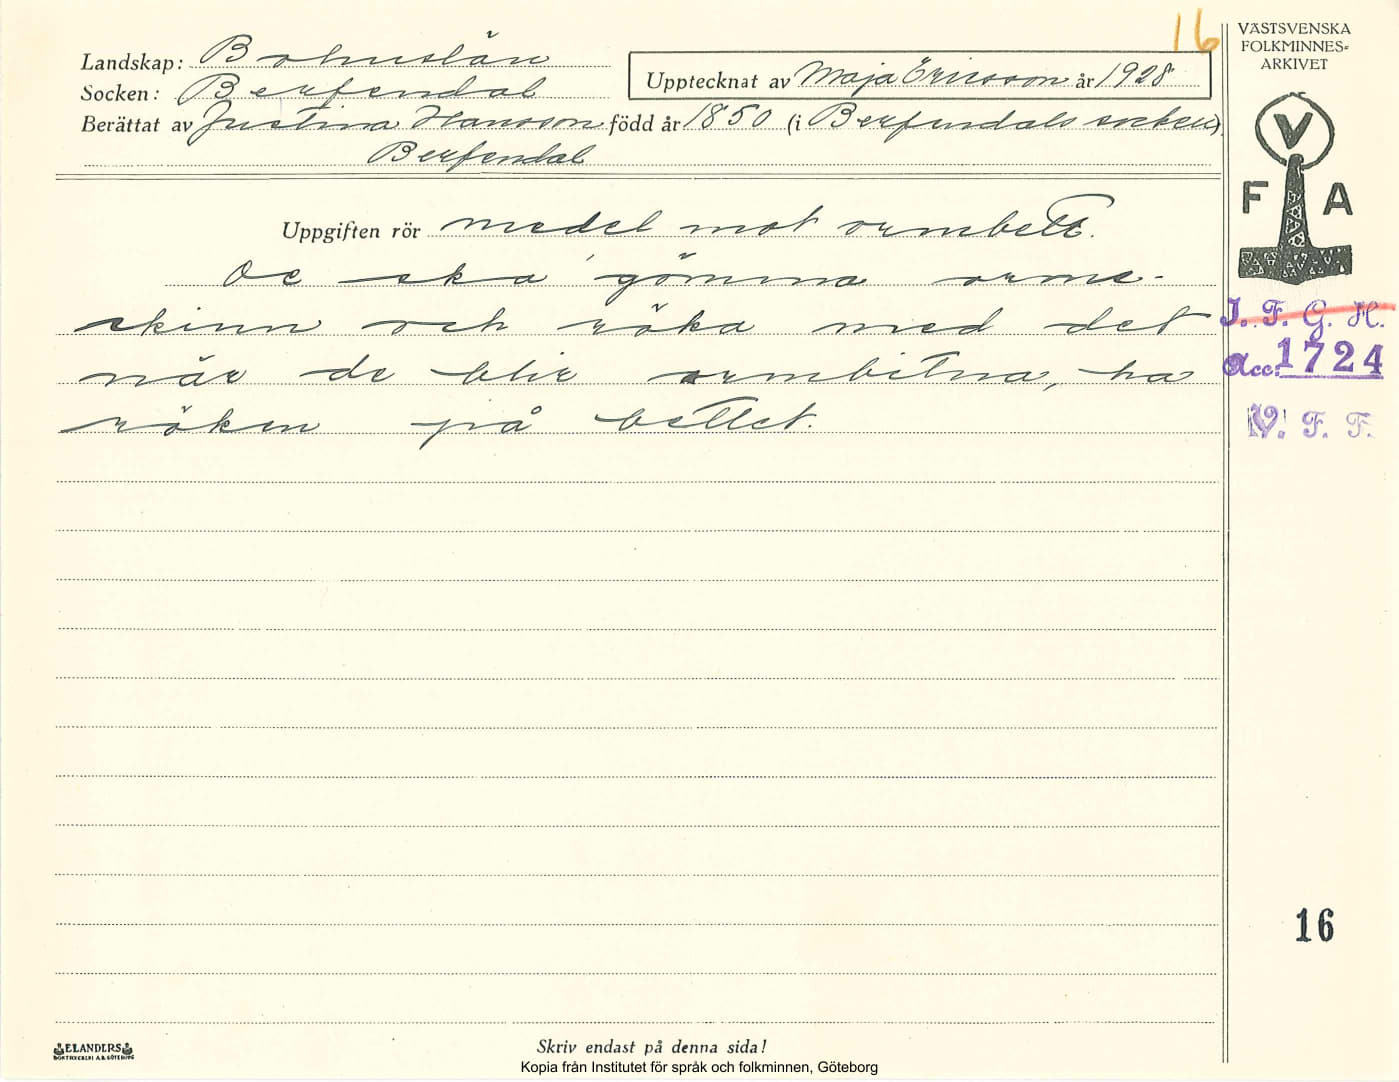 16
VÄSTSVENSKA
FOLKMINNES=
ARKIVET
Landskap: Bohuslän
Upptecknat av Maja Ericsson år 1928
Socken: Berfendal
Berättat av Justina Hansson född år 1850 (i Berfendals socken)
Berfendal
V
F A
Uppgiften rör medel mot ormbett.
De ska gömma orme-
skinn och röka med det
när de blir ormbitna, ha
röken på bettet.
I. F. G. H.
Acc. 1724
V. F. F.
16
ELANDERS
BOKTRYCKERI A.B. GÖTEBORG
Skriv endast på denna sida!
Kopia från Institutet för språk och folkminnen, Göteborg